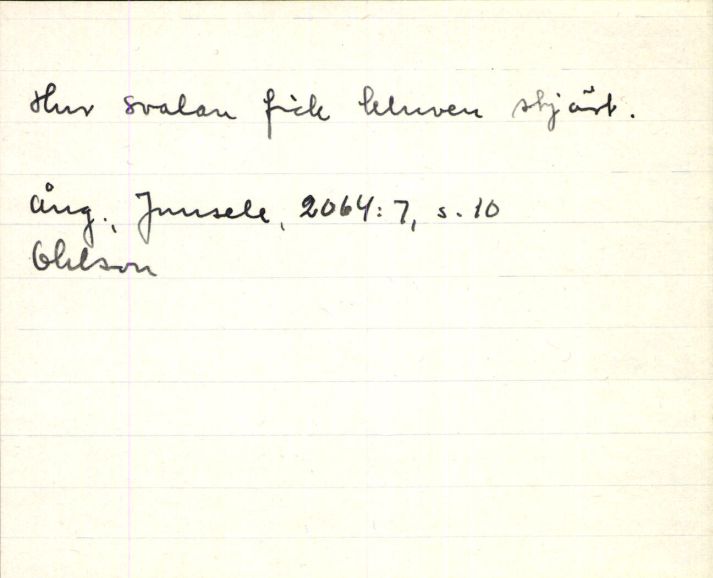 Hur svalan fick kluven stjärt.
Ång., Junsele, 2064:7, s. 10
Ohlson